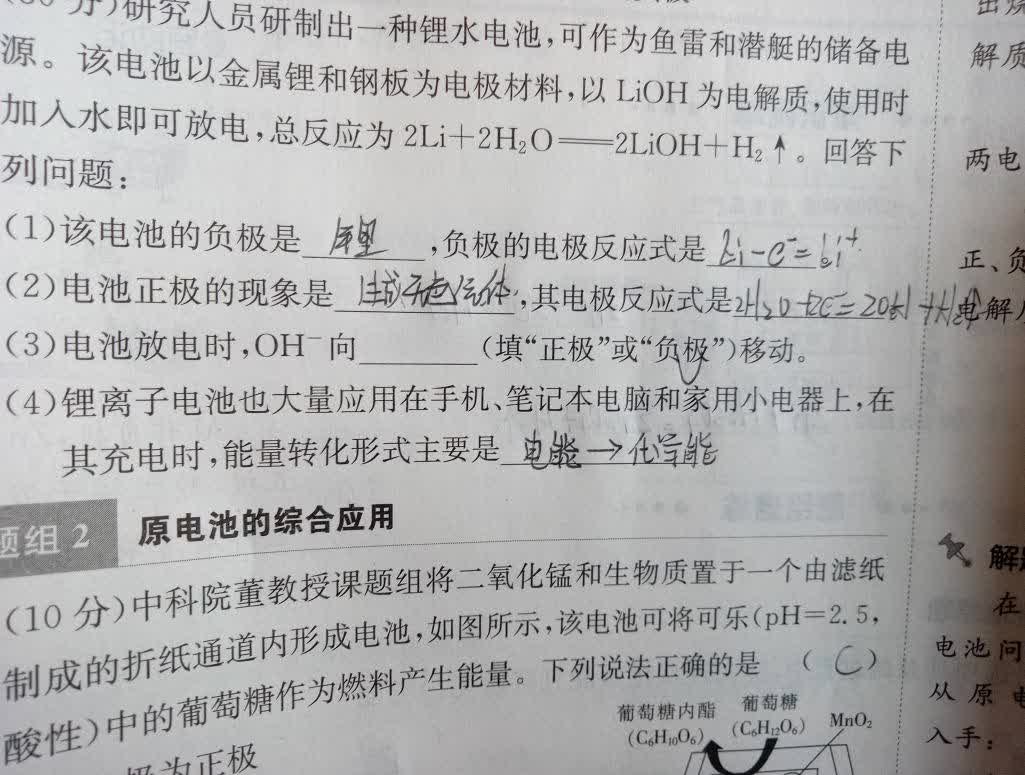 分)研究人员研制出一种锂水电池,可作为鱼雷和潜艇的储备电
源。该电池以金属锂和钢板为电极材料,以 LiOH 为电解质,使用时
加入水即可放电,总反应为 2Li+2H₂O═══2LiOH+H₂↑。回答下
列问题:
(1)该电池的负极是 锂 ,负极的电极反应式是 Li-e⁻=Li⁺
(2)电池正极的现象是 生成无色气体,其电极反应式是2H₂O+2e⁻=2OH⁻+H₂↑
(3)电池放电时,OH⁻向________(填“正极”或“负极”)移动。
(4)锂离子电池也大量应用在手机、笔记本电脑和家用小电器上,在
其充电时,能量转化形式主要是 电能→化学能
题组 2 原电池的综合应用
(10 分)中科院董教授课题组将二氧化锰和生物质置于一个由滤纸
制成的折纸通道内形成电池,如图所示,该电池可将可乐(pH=2.5,
酸性)中的葡萄糖作为燃料产生能量。下列说法正确的是 ( C )
葡萄糖内酯 葡萄糖
(C₆H₁₀O₆) (C₆H₁₂O₆) MnO₂
极为正极
解质
两电
正、负
电解
在
电池问
从原电
入手: